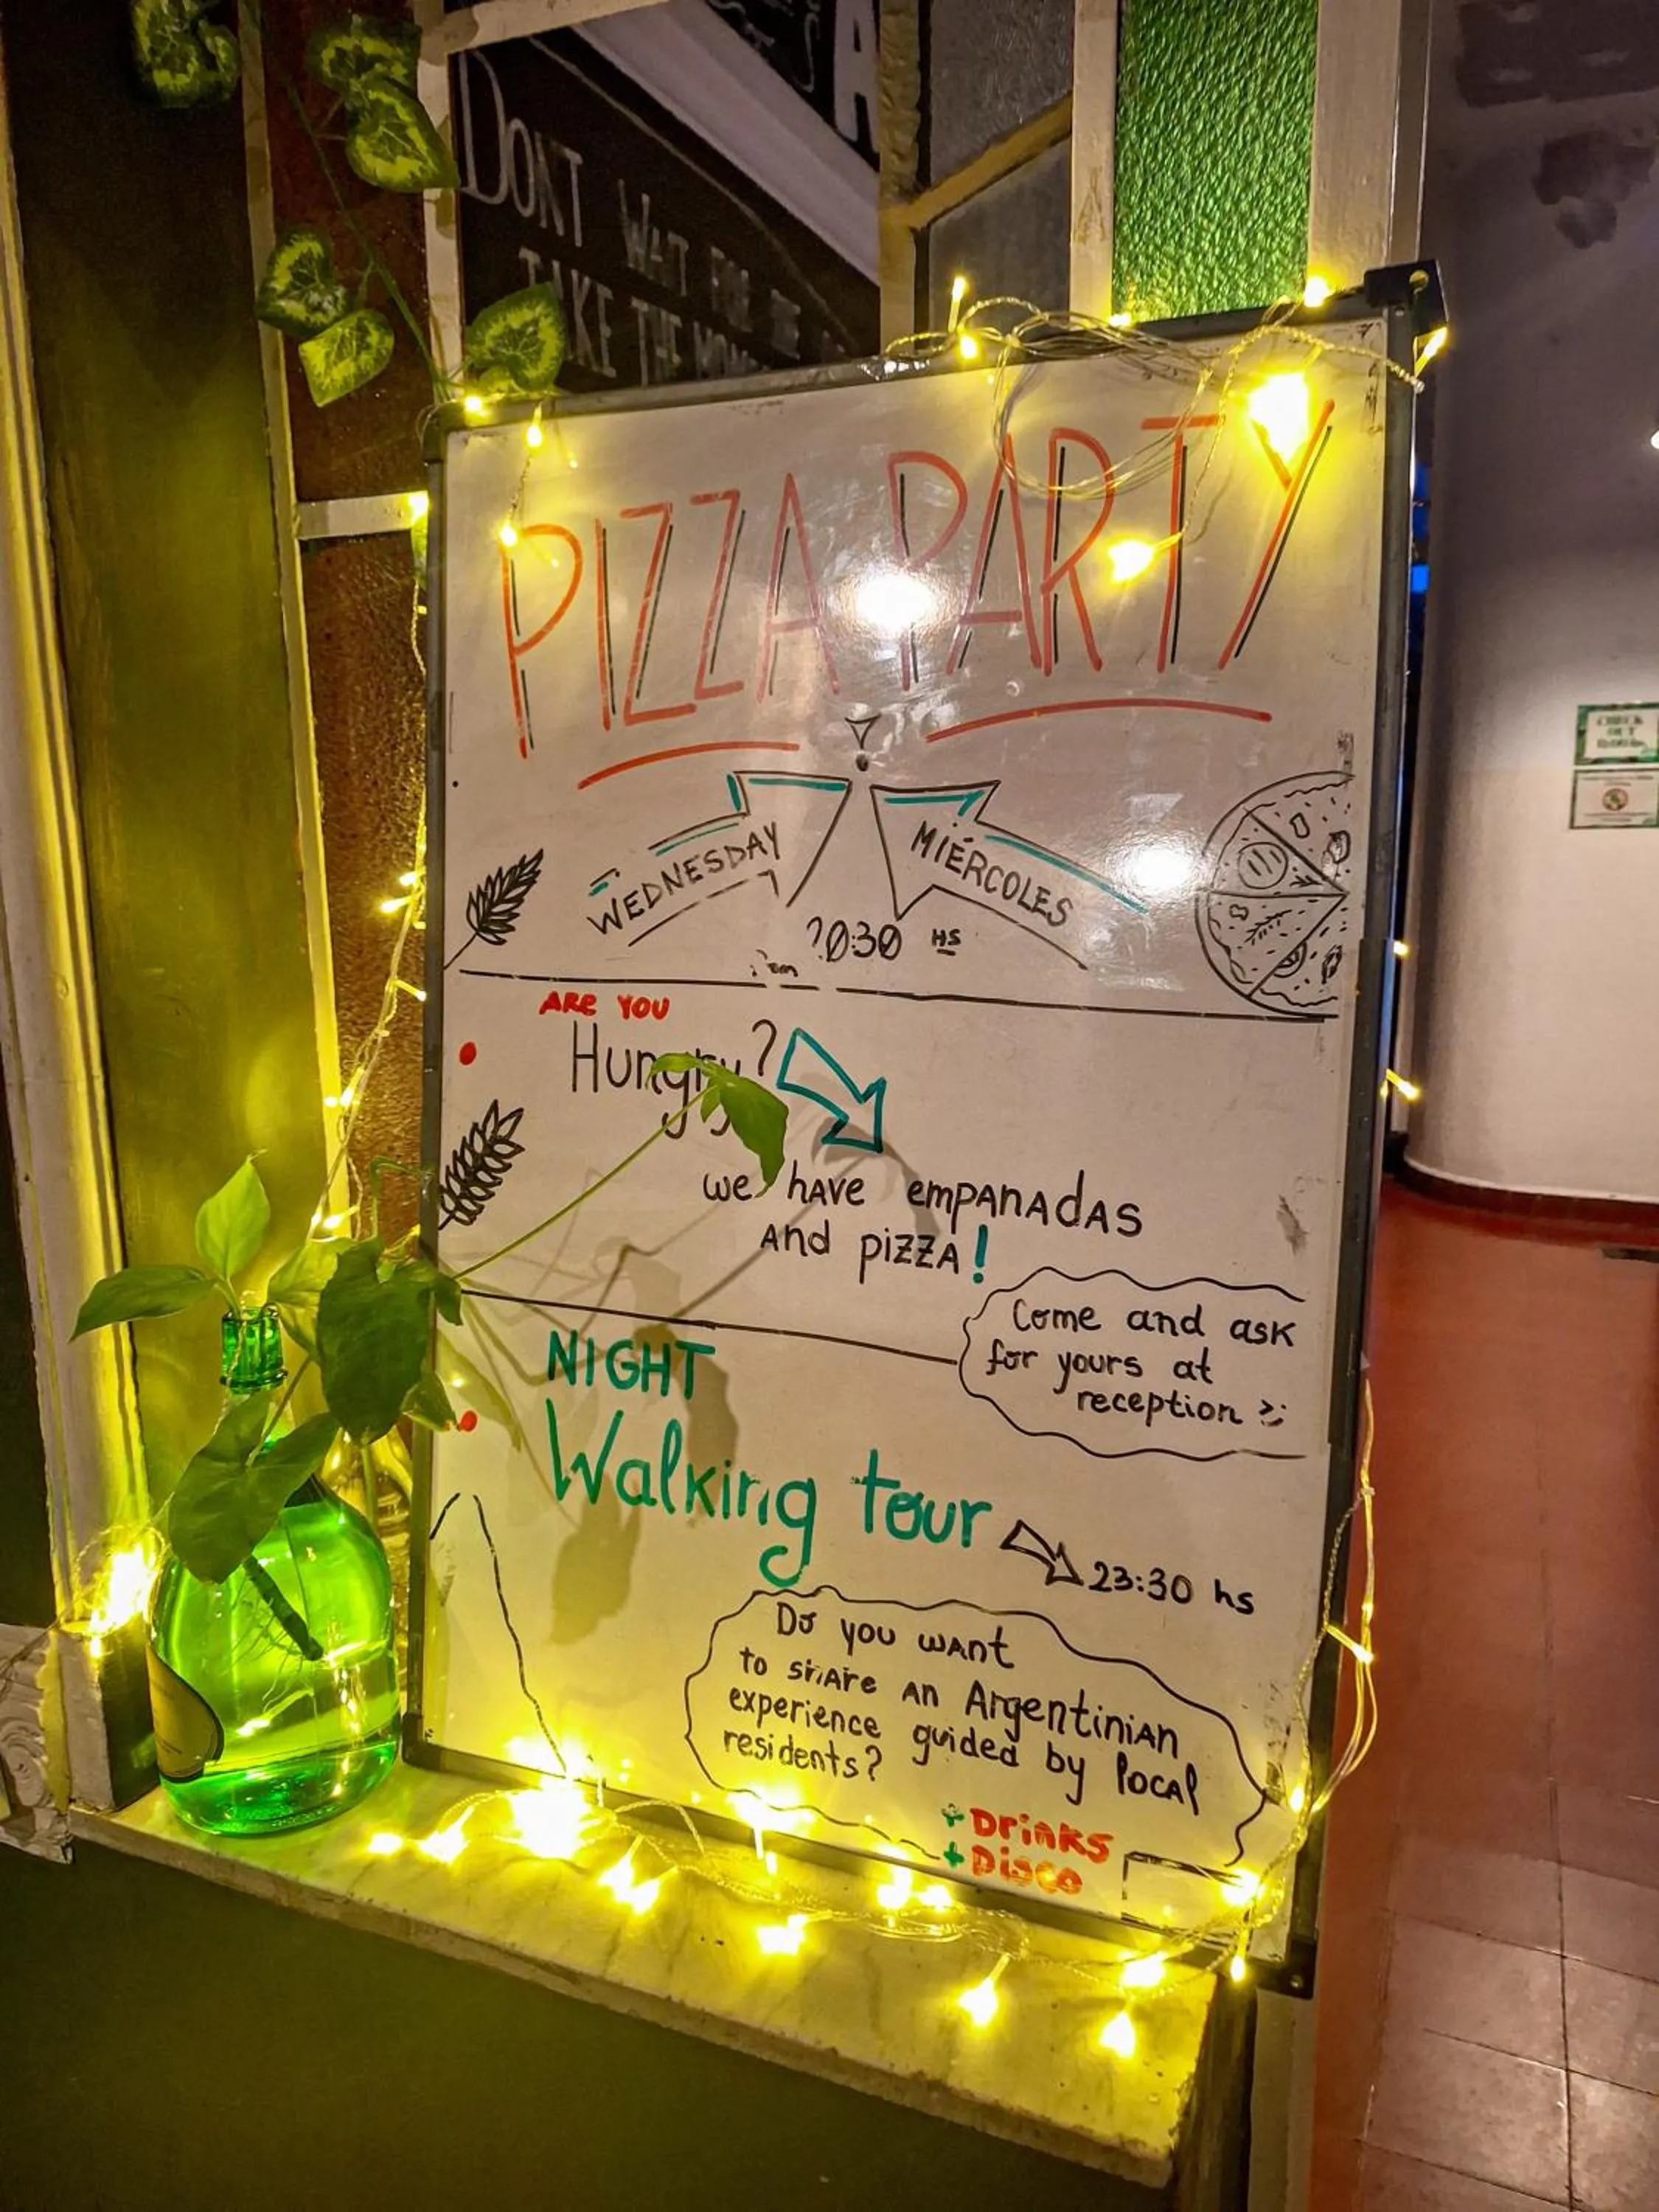 DONT WAIT FOR
TAKE THE
PIZZA PARTY
WEDNESDAY
MIÉRCOLES
20:30 HS
ARE YOU
Hungry?
we have empanadas
and pizza!
Come and ask
for yours at
reception
NIGHT
Walking tour
23:30 hs
Do you want
to share an Argentinian
experience guided by local
residents?
+ Drinks
+ Disco
CHECK
OUT